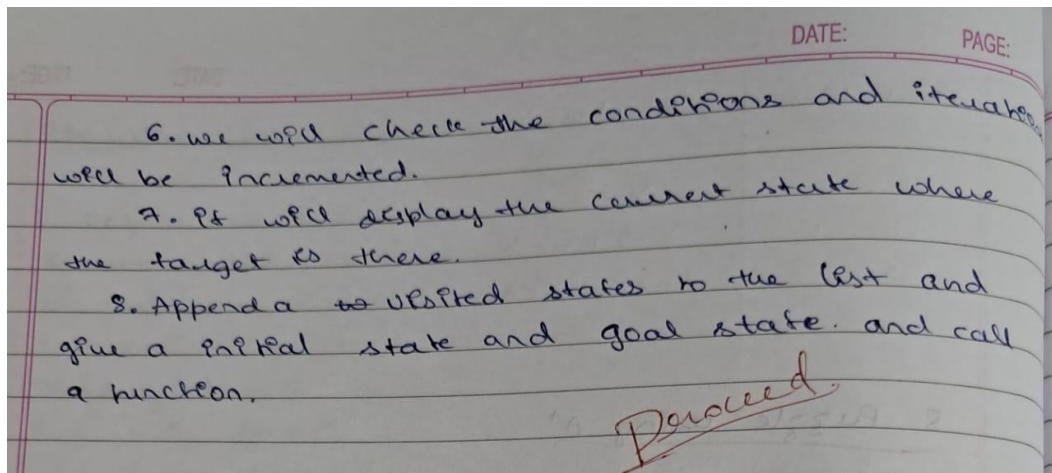 DATE:
PAGE:
6. we will check the conditions and iteration
will be incremented.
7. it will display the current state where
the target is there.
8. Append a visited states to the list and
give a initial state and goal state. and call
a function.
Proceed.